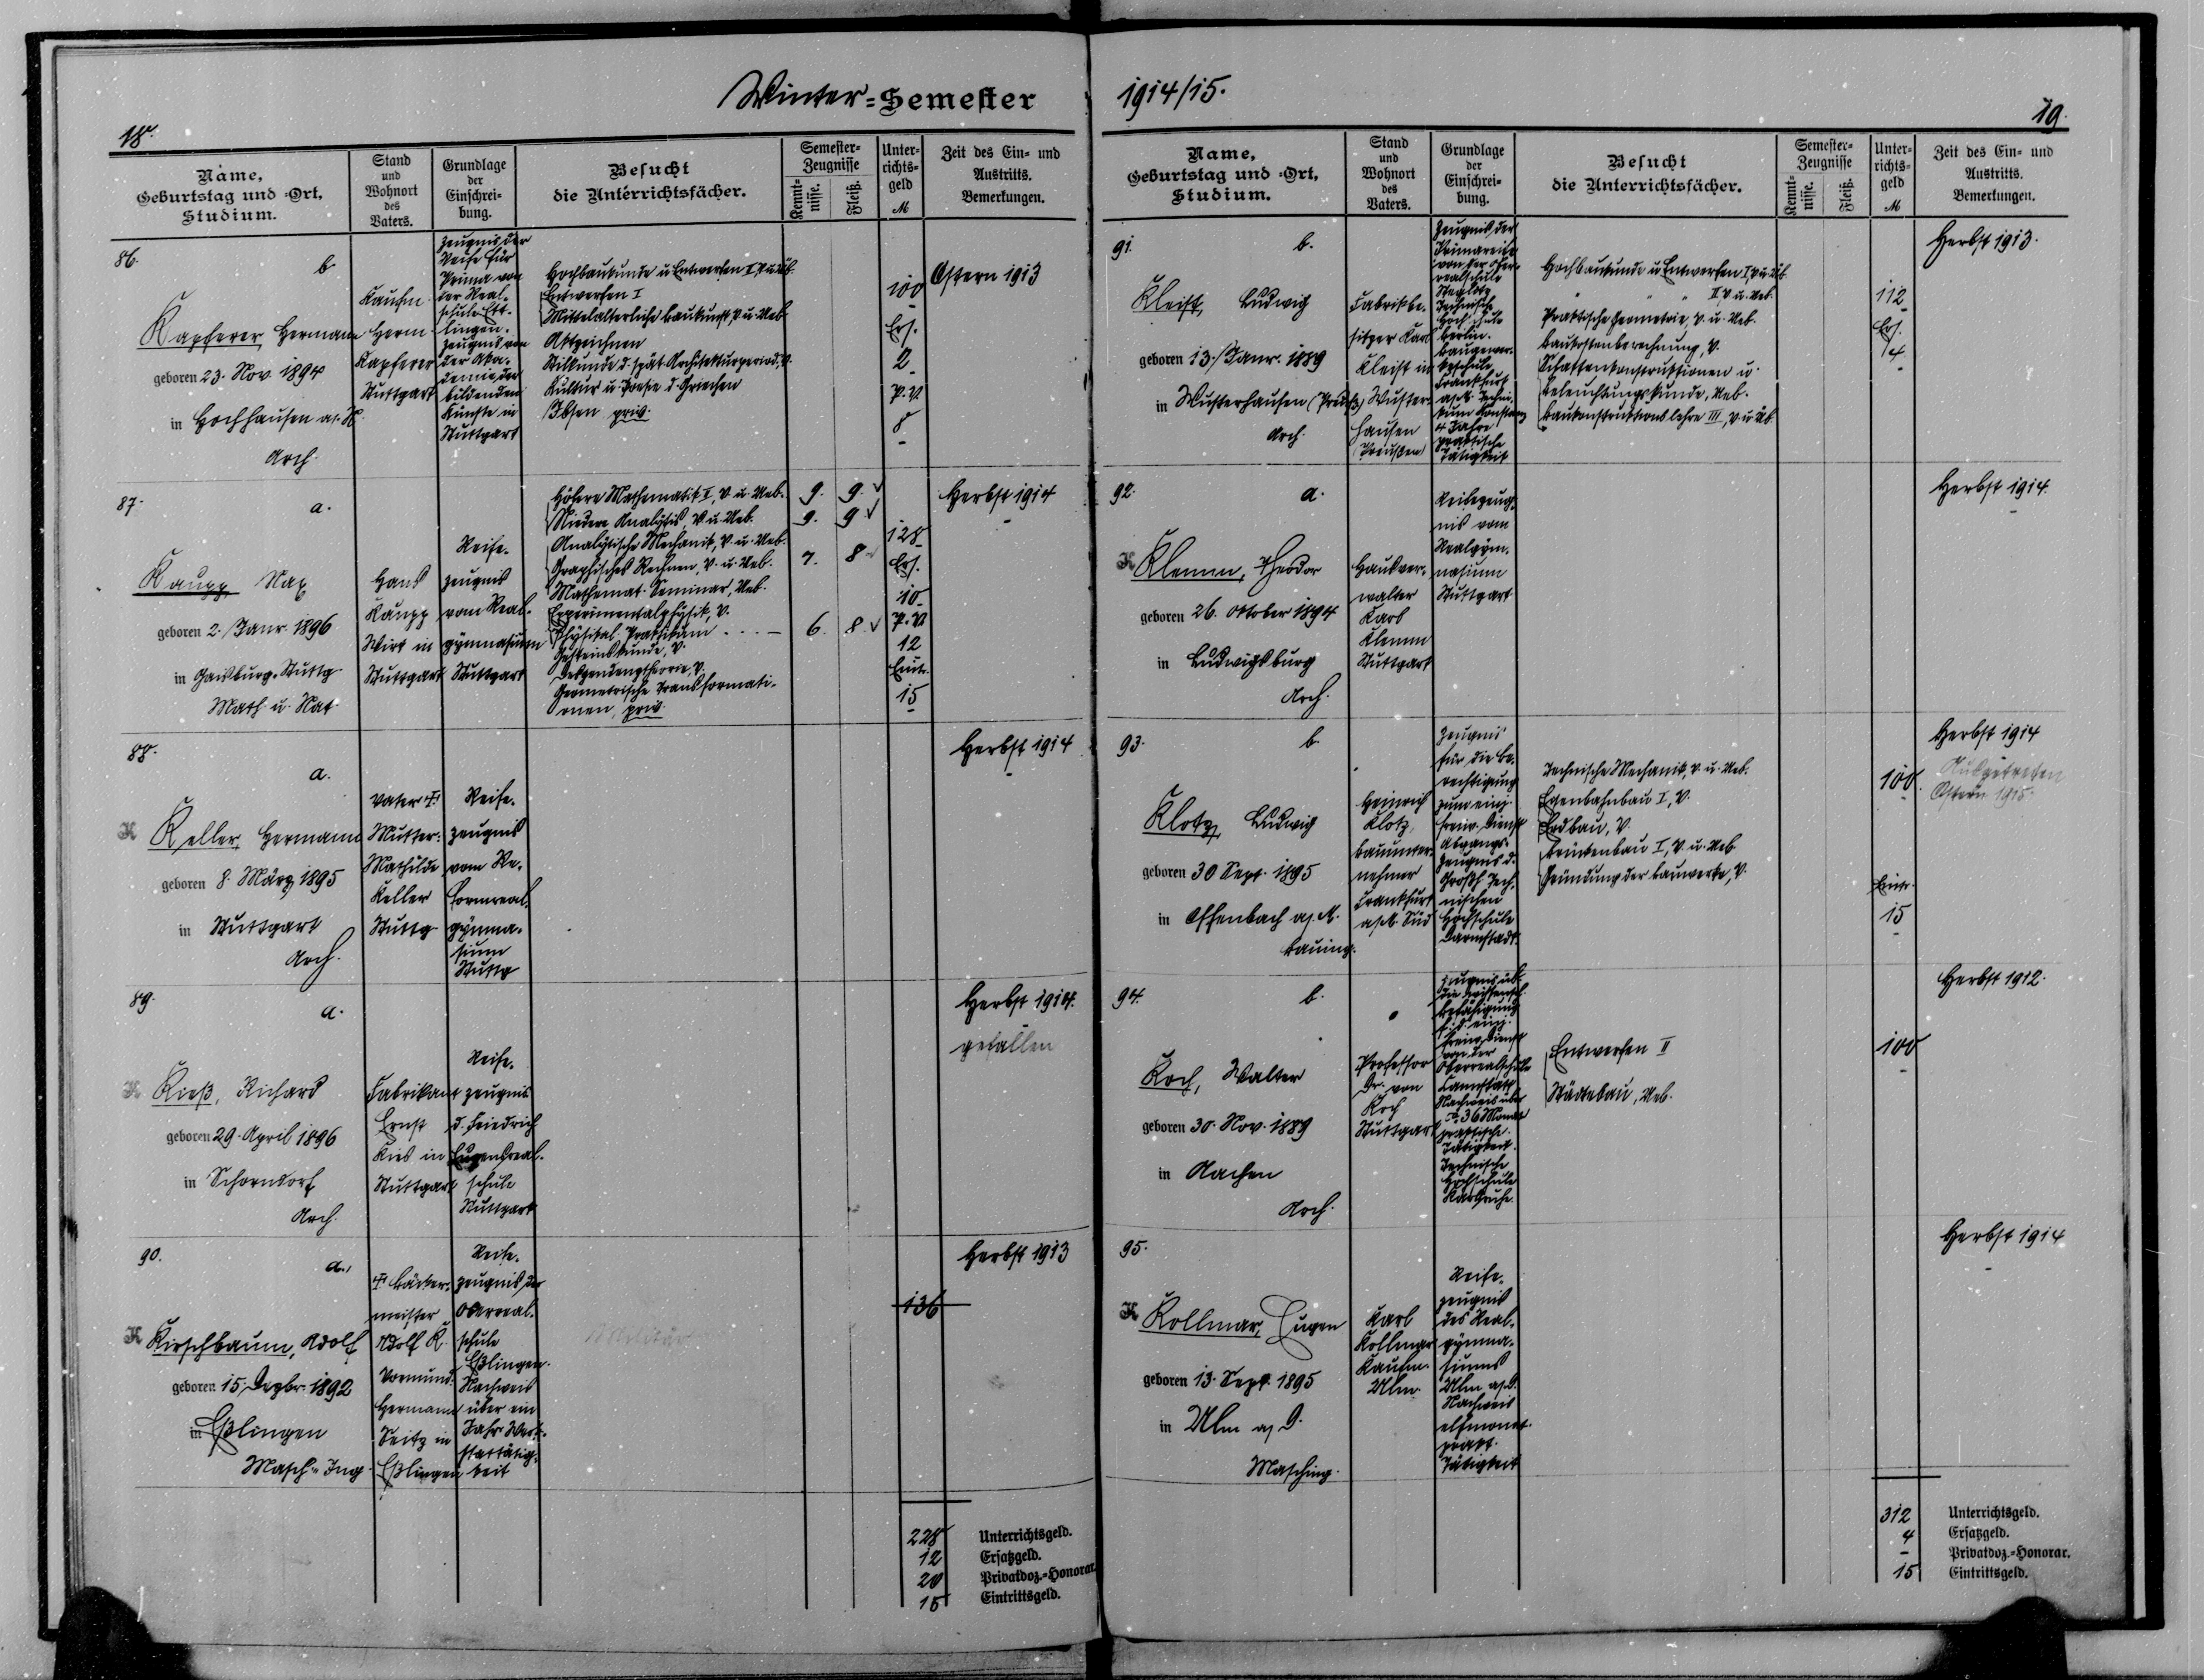 Winter=Semester
18.
Name,
Geburtstag und =Ort,
Studium.
Stand
und
Wohnort
des
Vaters.
Grundlage
der
Einschrei=
bung.
Besucht
die Unterrichtsfächer.
Semester=
Zeugnisse
Kennt=
nisse.
Fleiß.
Unter=
richts=
geld
M
Zeit des Ein= und
Austritts.
Bemerkungen.
86.
b
Kapferer, Hermann
geboren 23. Nov. 1894
in Hochhausen a/N.
Arch.
Kaufm.
Herm.
Kapferer
Stuttgart
Zeugnis der
Reife für
Prima von
der Real-
schule Ett-
lingen.
Zeugnis von
der Aka-
demie der
bildenden
Künste in
Stuttgart
Hochbaukunde u. Entwerfen I, V. u. Üb.
Entwerfen I
Mittelalterliche Baukunst, V. u. Ueb.
Aktzeichnen
Stilkunde d. spät. Architekturperiod., V.
Kultur u. Poesie d. Griechen
Ibsen priv.
100
Ers.
2
P.V.
8
Ostern 1913
87.
a.
Kaupp, Max
geboren 2. Janr. 1896
in Gaisburg-Stuttg.
Math. u. Nat.
Hans
Kaupp
Wirt in
Stuttgart
Reife-
zeugnis
vom Real-
gymnasium
Stuttgart
Höhere Mathematik I, V. u. Ueb. 9. 9. ✓
Niedere Analysis, V. u. Ueb. 9. 9 ✓
Analytische Mechanik, V. u. Ueb.
Graphisches Rechnen, V. u. Ueb. 7. 8
Mathemat. Seminar, Ueb.
Experimentalphysik, V.
Physikal. Praktikum 6. 8. ✓
Gesteinskunde, V.
Deszendenztheorie, V.
Geometrische Transformati-
onen, priv.
128
Ers.
10
P.V.
12
Eintr.
15
Herbst 1914
88.
a.
K Keller, Hermann
geboren 8. März 1895
in Stuttgart
Arch.
Vater †
Mutter:
Mathilde
Keller
Stuttg.
Reife-
zeugnis
vom Re-
formreal-
gymna-
sium
Stuttg.
Herbst 1914
89.
a.
K Kieß, Richard
geboren 29. April 1896
in Schorndorf
Arch.
Fabrikant
Ernst
Kies in
Stuttgart
Reife-
zeugnis
d. Friedrich
Eugensreal-
schule
Stuttgart
Herbst 1914.
gefallen
90.
a.
K Kirschbaum, Adolf
geboren 15. Dezbr. 1892
in Eßlingen
Masch.-Ing.
† Bäcker-
meister
Adolf K.
Vormund:
Hermann
Seitz in
Eßlingen
Reife-
zeugnis der
Oberreal-
schule
Eßlingen.
Nachweis
über ein
Jahr Werk-
stattätig-
keit
Militär
136
Herbst 1913
228 Unterrichtsgeld.
12 Ersatzgeld.
20 Privatdoz.=Honorar.
15 Eintrittsgeld.
1914/15.
19.
Name,
Geburtstag und =Ort,
Studium.
Stand
und
Wohnort
des
Vaters.
Grundlage
der
Einschrei=
bung.
Besucht
die Unterrichtsfächer.
Semester=
Zeugnisse
Kennt=
nisse.
Fleiß.
Unter=
richts=
geld
M
Zeit des Ein= und
Austritts.
Bemerkungen.
91.
b.
Kleist, Ludwig
geboren 13. Janr. 1889
in Wusterhausen (Preuß.)
Arch.
Fabrikbe-
sitzer Karl
Kleist in
Wuster-
hausen
(Preußen)
Zeugnis der
Primareife
von der Ober-
realschule
Steglitz
Technische
Hochschule
Berlin.
Baugewer-
keschule
Frankfurt
a/M. Techni-
kum Konstanz
4 Jahre
praktische
Tätigkeit
Hochbaukunde u. Entwerfen I, V. u. Üb.
" " II V. u. Ueb.
Praktische Geometrie, V. u. Ueb.
Baukostenberechnung, V.
Schattenkonstruktionen u.
Beleuchtungskunde, Ueb.
Baukonstruktionslehre III, V. u. Üb.
112
Ers.
4
Herbst 1913.
92.
a.
K Klemm, Theodor
geboren 26. Oktober 1894
in Ludwigsburg
Arch.
Hausver-
walter
Karl
Klemm
Stuttgart
Reifezeug-
nis vom
Realgym-
nasium
Stuttgart
Herbst 1914.
93.
b.
Klotz, Ludwig
geboren 30 Sept. 1895
in Offenbach a/M.
Bauing.
Heinrich
Klotz,
Bauunter-
nehmer
Frankfurt
a/M. Süd
Zeugnis
für die Be-
rechtigung
zum einj.
freiw. Dienst
Abgangs-
zeugnis d.
Großh. Tech-
nischen
Hochschule
Darmstadt
Technische Mechanik, V. u. Ueb.
Eisenbahnbau I, V.
Erdbau, V.
Brückenbau I, V. u. Ueb.
Gründung der Bauwerke, V.
100.
Eintr.
15
Herbst 1914
Ausgetreten
Ostern 1915.
94.
b.
Koch, Walter
geboren 30. Nov. 1889
in Aachen
Arch.
Professor
Dr. von
Koch
Stuttgart
Zeugnis üb.
die wissensch.
Befähigung
f. d. einj.
freiw. Dienst
von der
Oberrealschule
Cannstatt
Nachweis über
36 Monate
praktische
Tätigkeit.
Technische
Hochschule
Karlsruhe.
Entwerfen II
Städtebau, Ueb.
100
Herbst 1912.
95.
K Kollmar, Eugen
geboren 13. Sept. 1895
in Ulm a/D.
Masching.
Karl
Kollmar
Kaufm.
Ulm.
Reife-
zeugnis
des Real-
gymna-
siums
Ulm a/D.
Nachweis
elfmonat.
prakt.
Tätigkeit
Herbst 1914
312 Unterrichtsgeld.
4 Ersatzgeld.
- Privatdoz.=Honorar.
15 Eintrittsgeld.